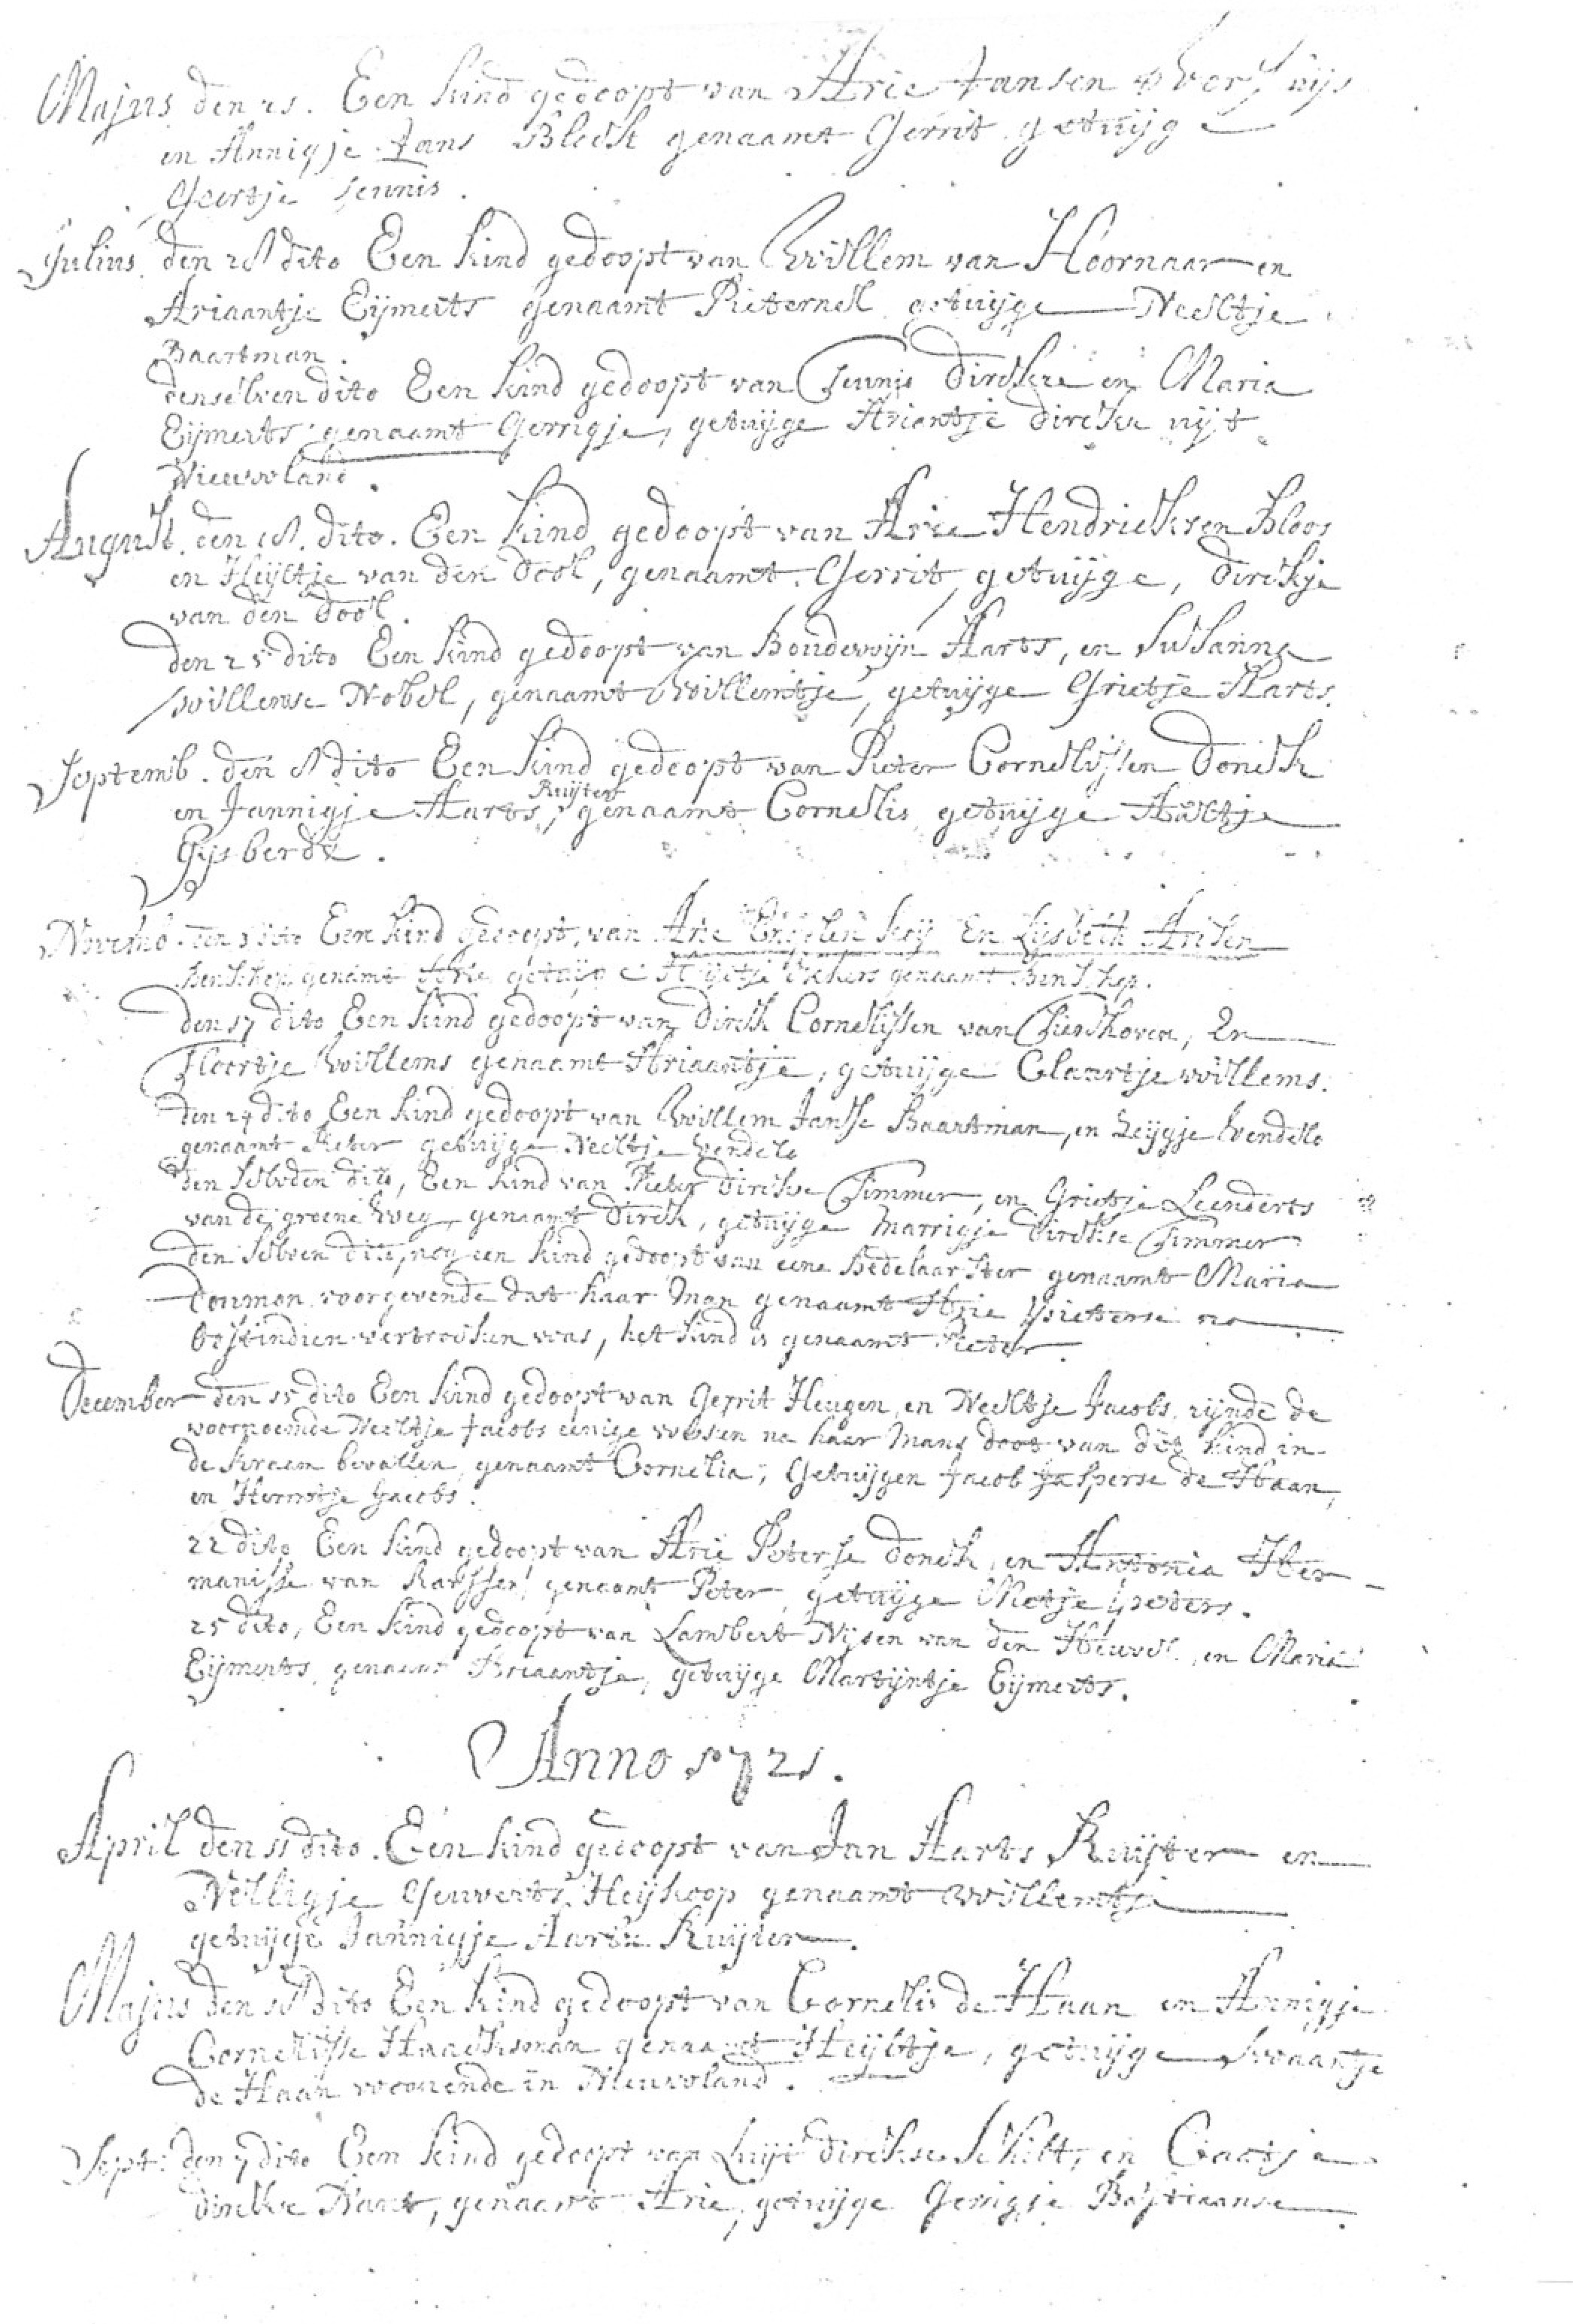 Majus den 21. Een kind gedoopt van Arie Jansen
en Annigje Jans Bleek genaamt Gerrit getuijge
Geertje Teunis.
Julius den 28 dito Een kind gedoopt van Willem van Hoornaar en
Ariaantje Eijmerts genaamt Pieternel getuijge Neeltje
Baartman.
denselven dito Een kind gedoopt van Teunis Dirckze en Maria
Eijmerts genaamt Gerrigje, getuijge Ariantje Dirckze uijt
Nieuwland.
August. den 18. dito. Een kind gedoopt van Arie Hendricksen Kloos
en Heijltje van den Dool, genaamt Gerrit, getuijge, Dirckje
van den Dool.
den 25 dito Een kind gedoopt van Boudewijn Aarts, en Susanna
Willemse Nobel, genaamt Willemtje, getuijge Grietje Aarts.
Septemb. den 8 dito Een kind gedoopt van Pieter Cornelissen Donck
en Jannigje Aarts Ruijter, genaamt Cornelis getuijge Aaltje
Gijsberdz.
Novemb. den 3 dito Een kind gedoopt, van Arie Engelen Keij En Lijsbeth Arisen
Benschop, genamt Arie getuijge Ekkers genaamt Benschop.
den 17 dito Een kind gedoopt van Dirck Cornelissen van Eindhoven, En
Floortje Willems genaamt Ariaantje, getuijge Claartje Willems.
den 24 dito Een kind gedoopt van Willem Janse Baartman, en Leijgje Wendels
genaamt Pieter getuijge Neeltje Wendels
den selvden dito, Een kind van Pieter Dirckse Timmer, en Grietje Leenderts
van de groene Weg, genaamt Dirck, getuijge Marrigje Dirckse Timmer
den selven dito, nog een kind gedoopt van eene Bedelaarster genaamt Maria
Toumon voorgevende dat haar man genaamt Arie Pieterse na
Oostindien vertrocken was, het kind is genaamt Pieter.
December den 15 dito Een kind gedoopt van Gerrit Heugen, en Neeltje Jacobs, zijnde de
voornoemde Neeltje Jacobs eenige weken na haar mans doot van dit kind in
de kraam bevallen, genaamt Cornelia, Getuijgen Jacob Jasperse de Haan,
en Hermtje Jacobs.
22 dito Een kind gedoopt van Arie Peterse Donck, en Antonia Her-
manisse van Rarssen, genaamt Peter, getuijge Metje Peters.
25 dito, Een kind gedoopt van Lambert Nijsen van den Heuvel, en Maria
Eijmerts, genaamt Ariaantje, getuijge Martijntje Eijmerts.
Anno 1721.
April den 11 dito. Een kind gedoopt van Jan Aarts Ruijter en
Nelligje Geuverts Heijkoop genaamt Willemtje
getuijge Jannigje Aartze Ruijter.
Majus den 18 dito Een kind gedoopt van Cornelis de Haan en Annigje
Cornelisse Haacksman genaamt Heijltje, getuijge Swaantje
de Haan woonende in Nieuwland.
Sept: den 7 dito Een kind gedoopt van Luijt Dirckse Schilt, en Caatje
Dirckse Nant, genaamt Arie, getuijge Gerrigje Bastiaanse